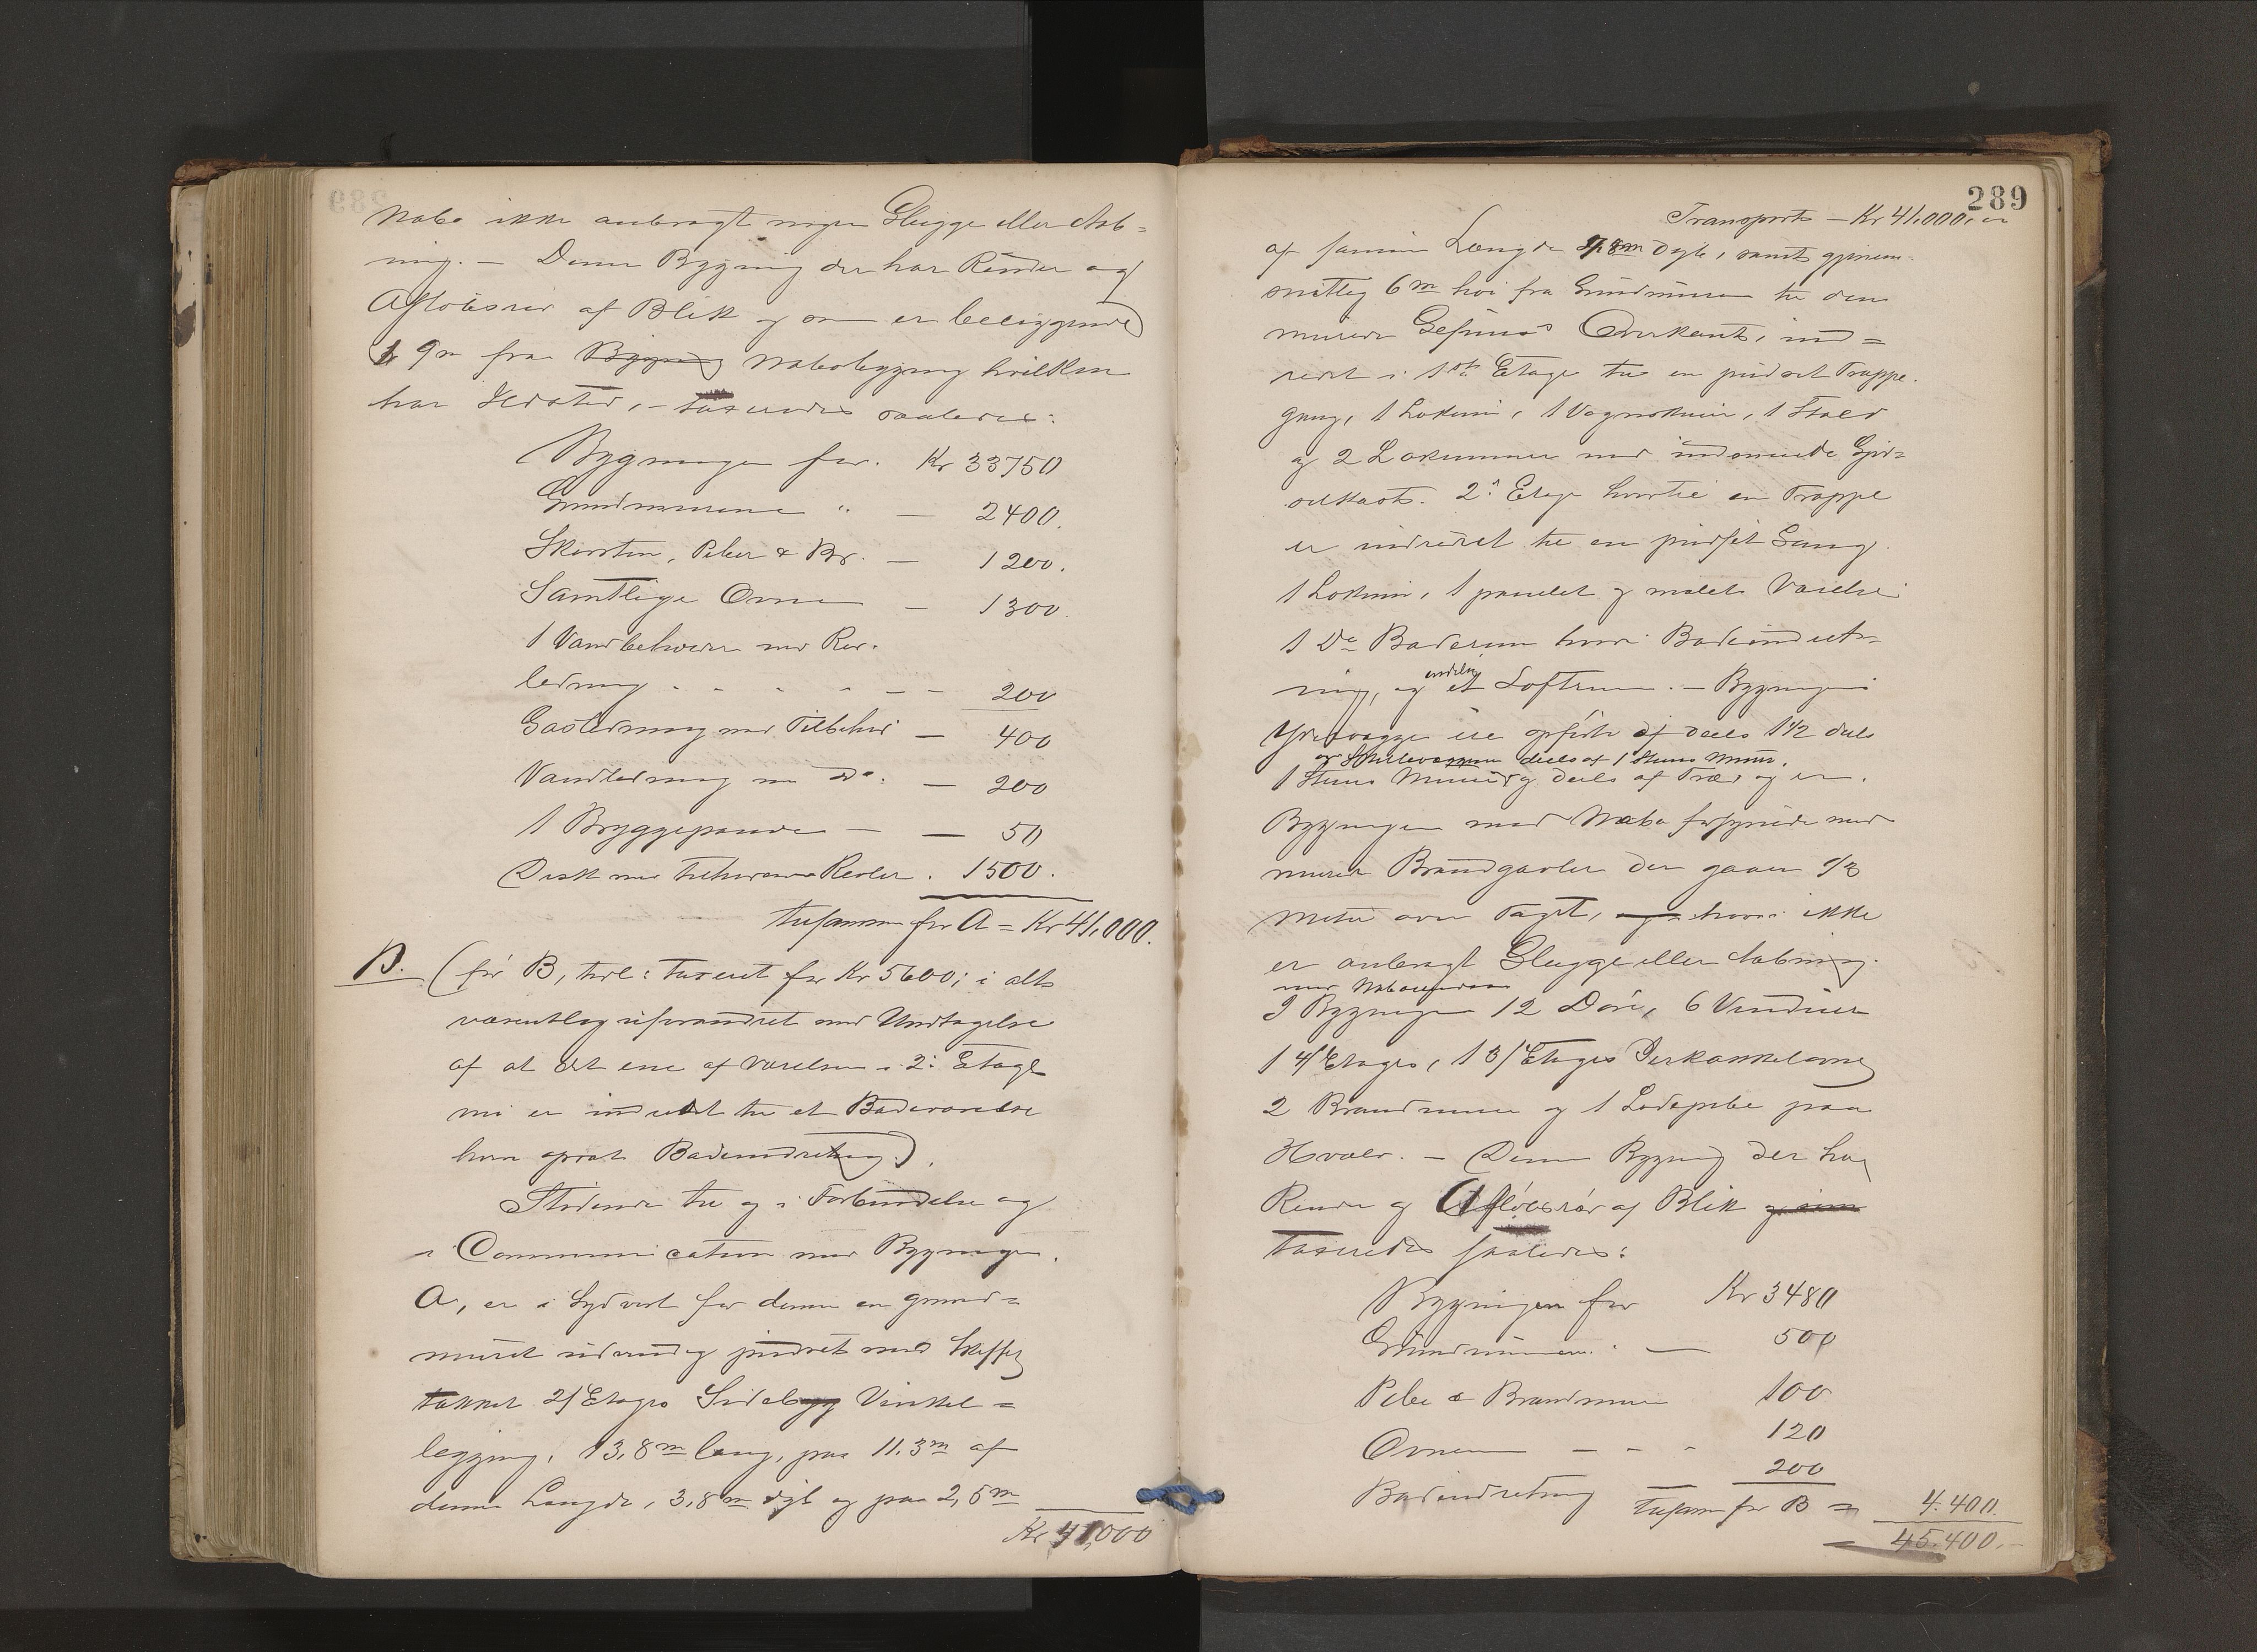 Nabo ikke anbragt nogen Glugge eller Aab=
ning. — Denne Bygning der har Render og
Afløbsrør af Blik og som er beliggende
9m fra Bygning Nabobygning hvilken
har Ildsted, – taxeredes saaledes:
Bygningen for. Kr 33750
Grundmurene " — 2400.
Skorsten, Piber & Br. — 1200.
Samtlige Ovne — 1300.
1 Vandbeholder med Rør-
ledning - - - - — 200
Gasledning med Tilbehør — 400
Vandledning m Do. — 200
1 Bryggepande — — 50
Disk med tilhørende Reoler . 1500.
tilsammen for A = Kr 41,000.
B. (før B, hvl: taxeret for Kr 5600; i alt
væsentlig uforandret med Undtagelse
af at det ene af Værelserne i 2: Etage
nu er indredet til et Badeværelse
hvor opsat Badeindretning).
Stødende til og i Forbindelse og
i Communication med Bygningen
A, er i Sydvest for denne en grund=
muret udvendig pudset med Skiffer
takket 2/Etages Sidebygg Vinkel=
bygging, 13,8m lang, paa 11.3m af
denne Længde, 3,8m dyb og paa 2,5m
Kr 41,000
289
Transport — Kr 41,000, —
af samme Længde 4,8m dyb, samt gjennem-
snitlig 6m høi fra Grundmuren til den
murede Gesims's Overkant, ind=
redet i 1ste Etage til en pudset Trappe-
gang, 1 Lokum, 1 Vognskuur, 1 Stald
og 2 Lokummer med indmurede Gjød=
selkast. 2: Etage hvortil en Trappe
er indredet til en pudset Gang
1 Lokum, 1 panelet og malet Værelse
1 Do Baderum hvori Badeindret=
ning, og endelig et Loftrum. — Bygningens
Ydrevægge ere opførte af deels 1 1/2 deels
og Skillevæggene deels af 1 Steens Muur,
1 Steens Muur og deels af Træ, og er
Bygningen mod Nabo forsynede med
murede Brandgavler der gaaer 1/3
Meter over Taget, og hvori ikke
er anbragt Glugge eller Aabning
mod Naboeiendom
I Bygningen 12 Døre, 6 Vinduer
1 4/Etages, 1 3/Etages Jerkakkelovne
2 Brandmure og 1 Lodpibe paa
Hvælv. — Denne Bygning der har
Render og Afløbsrør af Blik og som
taxeredes saaledes:
Bygningen for Kr 3480
Grundmuren — 500
Piber & Brandmure 100
Ovnene — - - 120
Badeindretning — 200
tilsammen for B = 4.400.
45.400.—